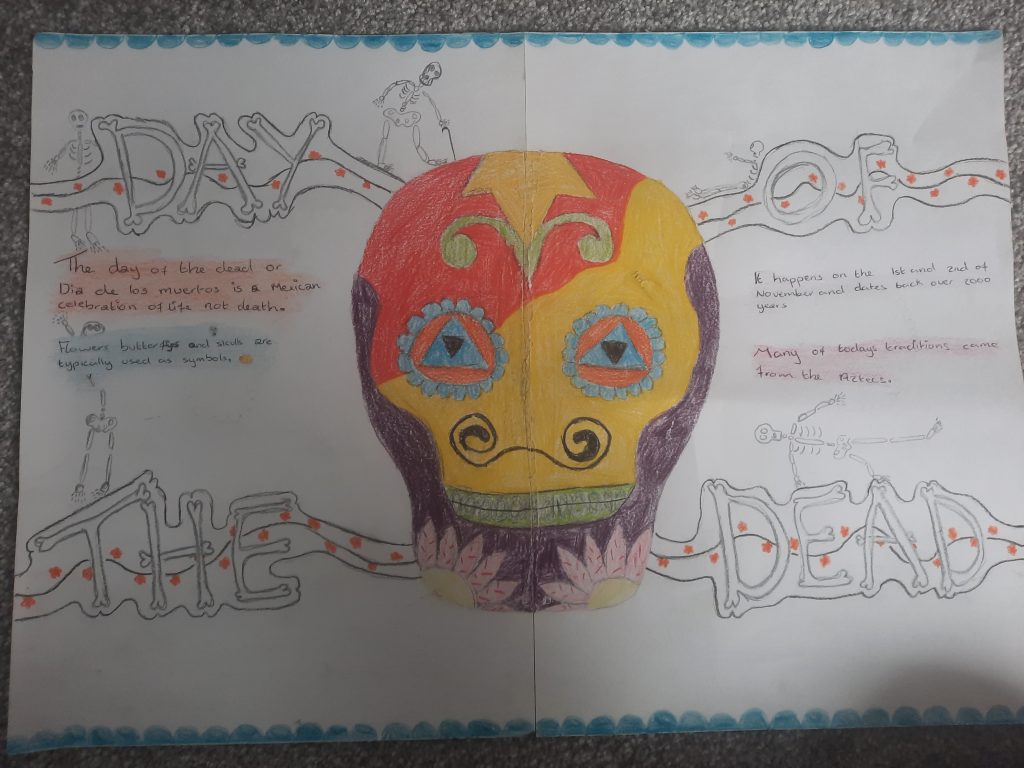 DAY OF
THE DEAD
The day of the dead or
Dia de los muertos is a Mexican
celebration of life not death.
Flowers butterflys and skulls are
typically used as symbols.
It happens on the 1st and 2nd of
November and dates back over 2000
years
Many of todays traditions came
from the Aztecs.